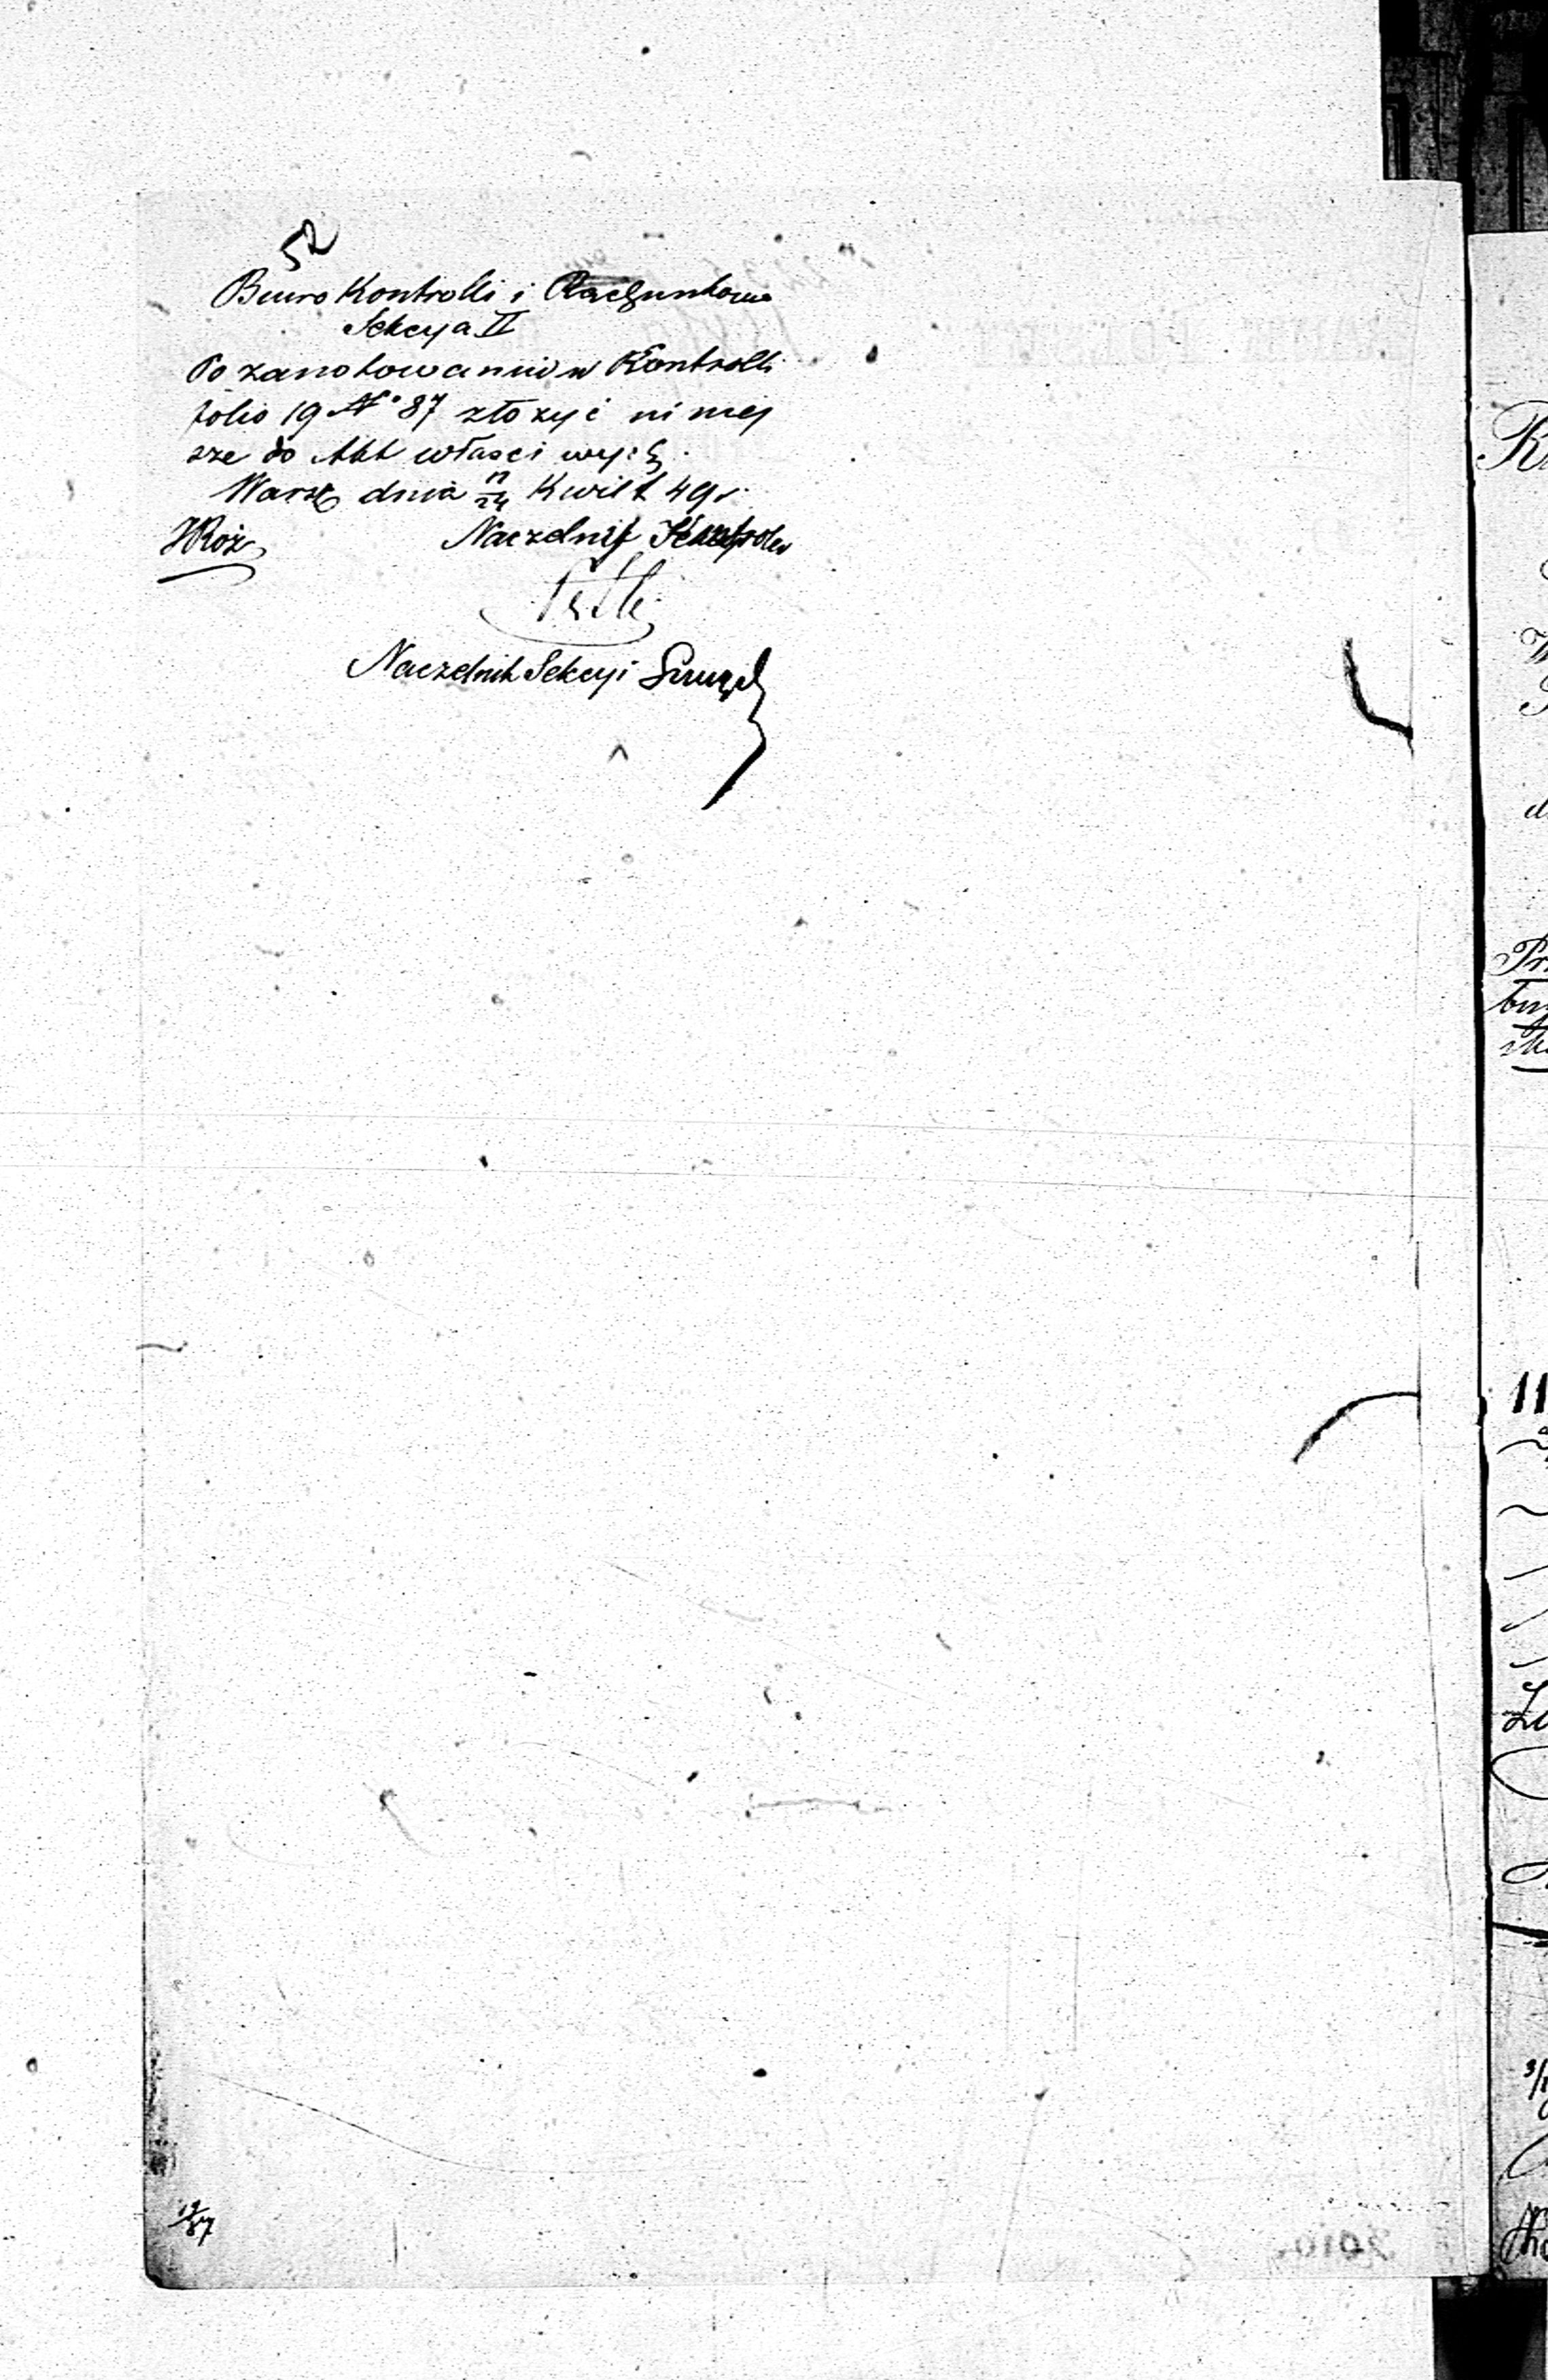 52
Biuro Kontrolli i Rachunkowe
Sekcya II
Po zanotowaniu w Kontrolli
folio 19 № 87 złożyć niniej
sze do Akt właściwych.
Warsz dnia 12/24 Kwiet 49 r.
Naczelnik Kontroler
Naczelnik Sekcyi
19/87